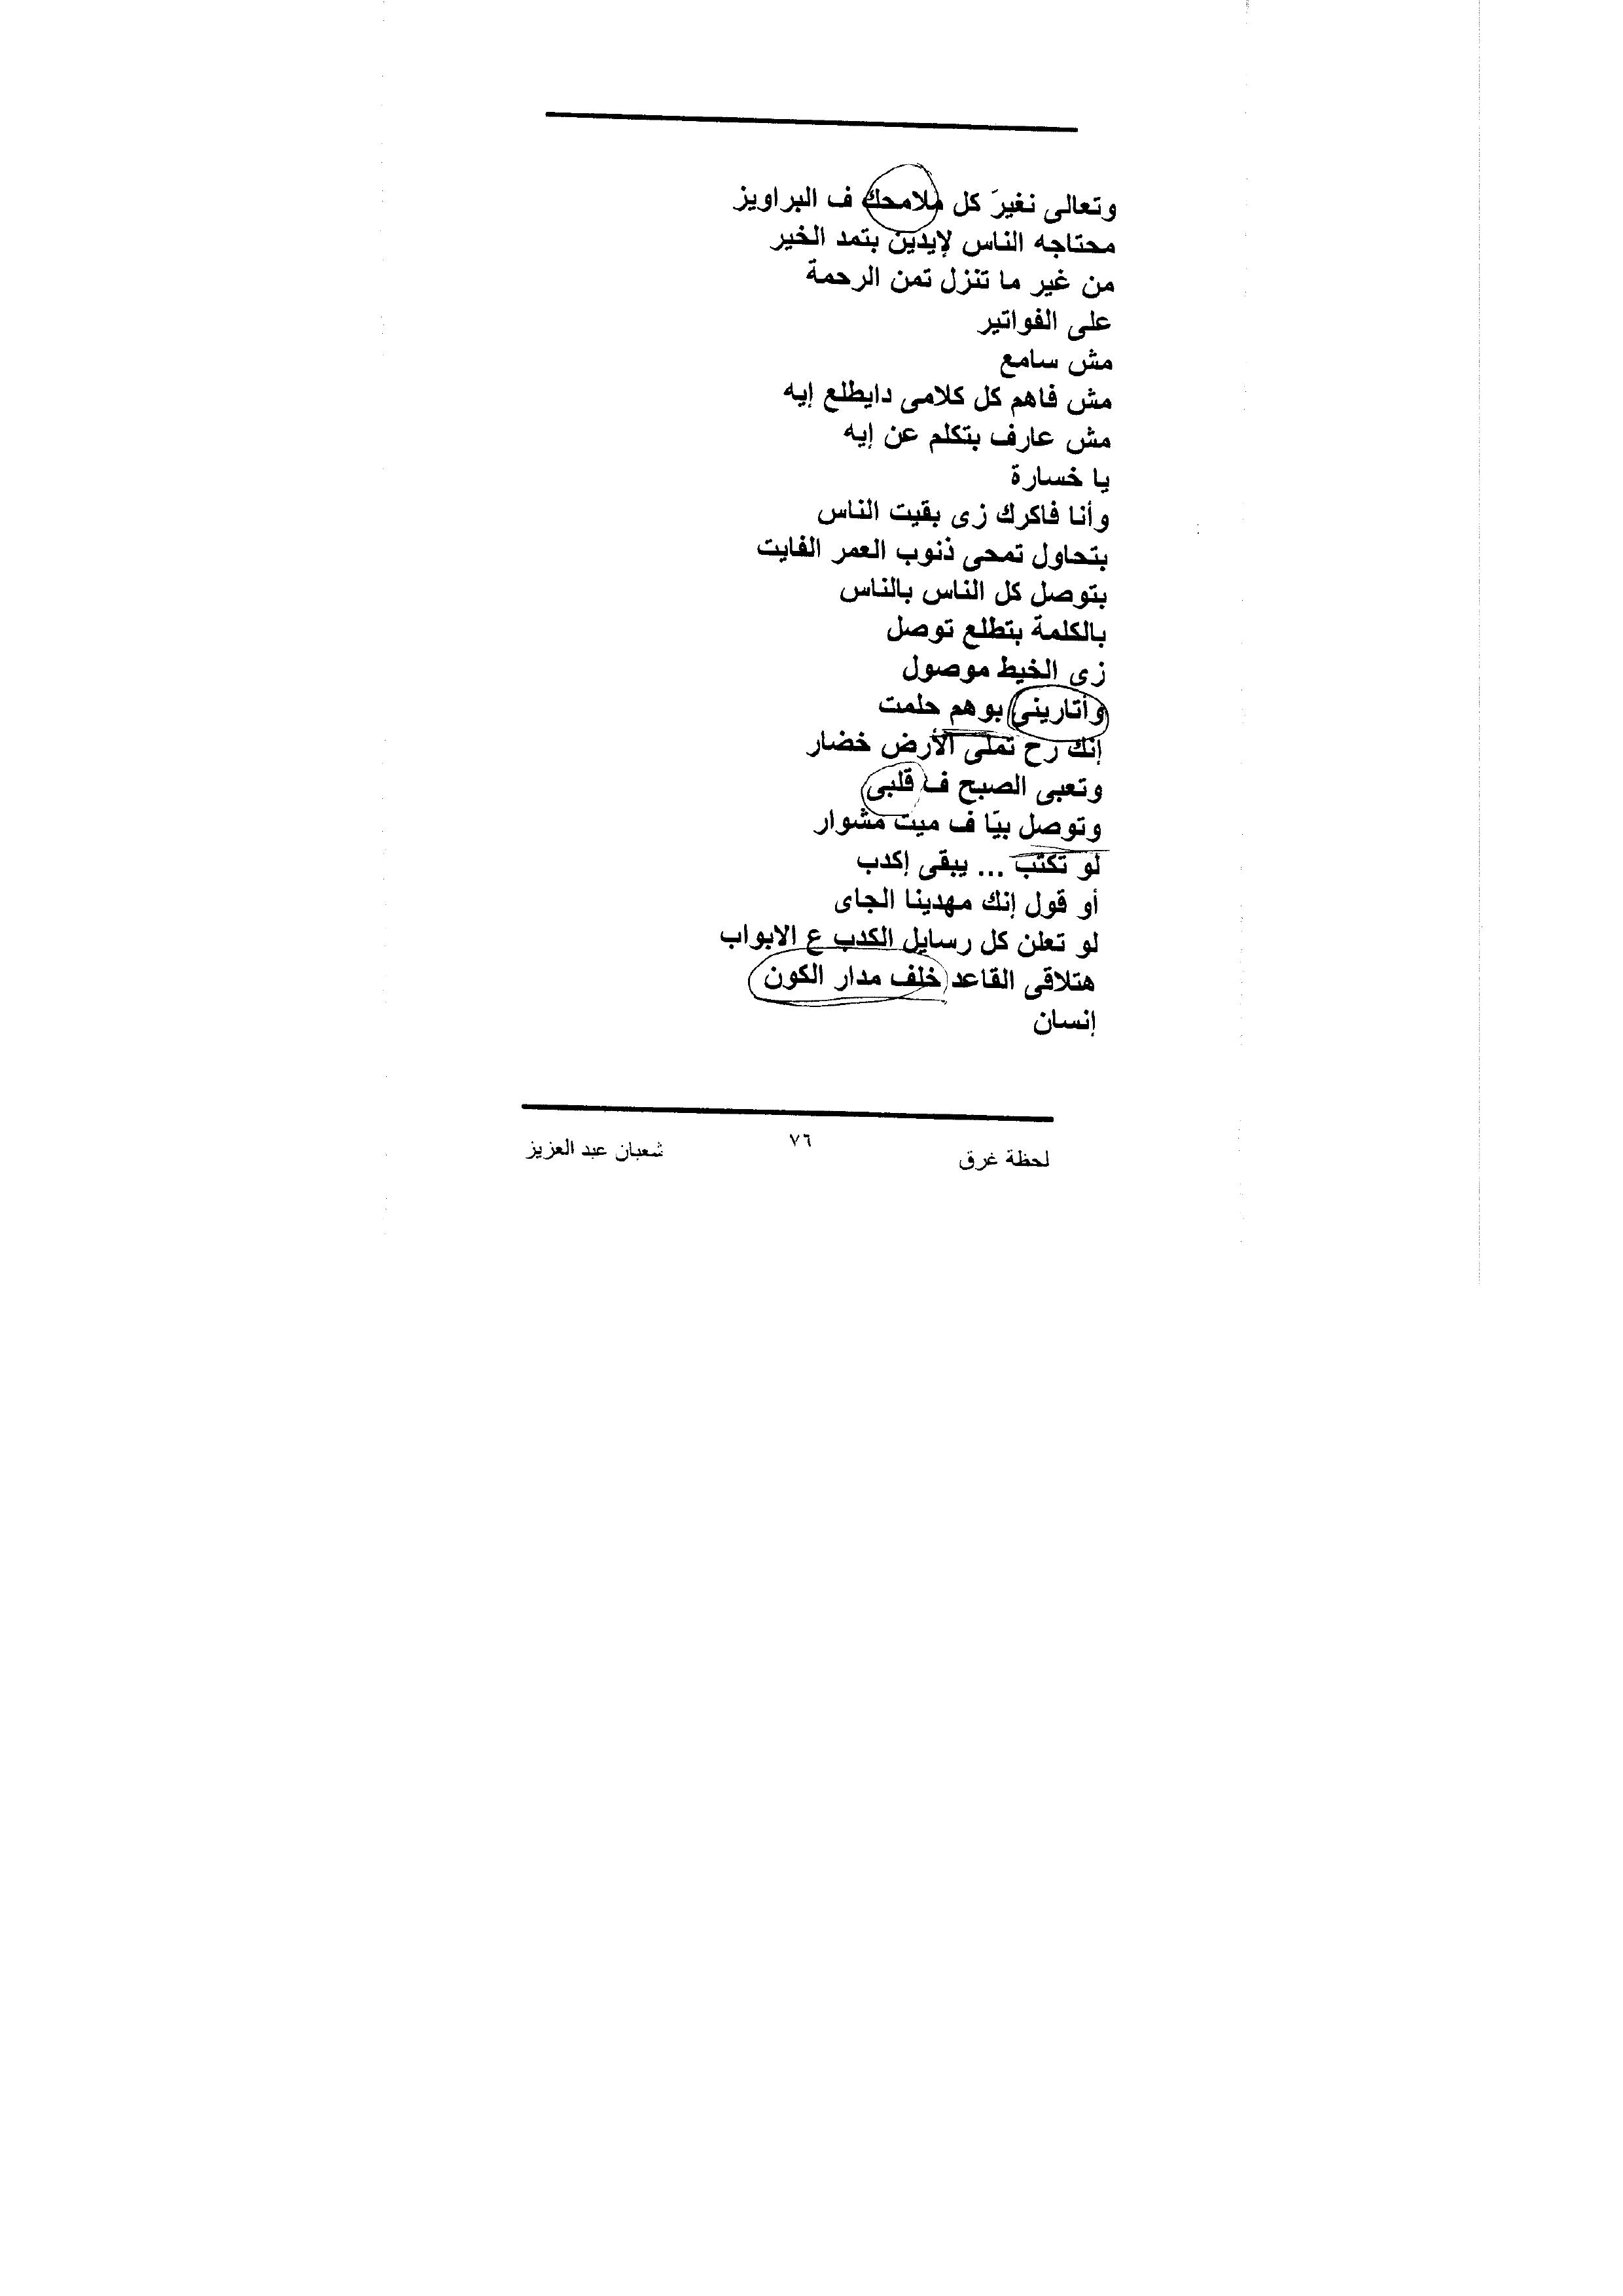 وتعالى نغيرَ كل ملامحك ف البراويز
محتاجه الناس لإيدين بتمد الخير
من غير ما تنزل تمن الرحمة
على الفواتير
مش سامع
مش فاهم كل كلامى دايطلع إيه
مش عارف بتكلم عن إيه
يا خسارة
وأنا فاكرك زى بقيت الناس
بتحاول تمحى ذنوب العمر الفايت
بتوصل كل الناس بالناس
بالكلمة بتطلع توصل
زى الخيط موصول
وأتارينى بوهم حلمت
إنك رح تملى الأرض خضار
وتعبى الصبح ف قلبى
وتوصل بيَا ف ميت مشوار
لو تكتب ... يبقى إكدب
أو قول إنك مهدينا الجاى
لو تعلن كل رسايل الكدب ع الابواب
هتلاقى القاعد خلف مدار الكون
إنسان
لحظة غرق ٧٦ شعبان عبد العزيز